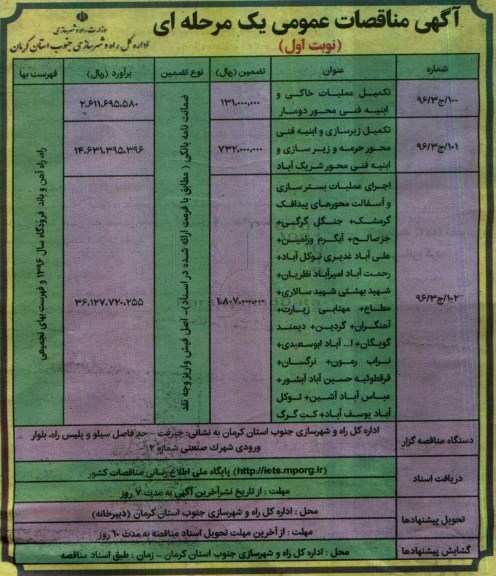 آگهی مناقصات عمومی یک مرحله ای
(نوبت اول)
وزارت راه و شهرسازی
اداره کل راه و شهرسازی جنوب استان کرمان
شماره
عنوان
تضمین (ریال)
نوع تضمین
برآورد (ریال)
فهرست بها
۱۰۰/ج۹۶/۳
تکمیل عملیات خاکی و
ابنیه فنی محور دومار
۱۳۱,۰۰۰,۰۰۰
۲,۶۱۱,۶۹۵,۵۸۰
۱۰۱/ج۹۶/۳
تکمیل زیرسازی و ابنیه فنی
محور حرمه و زیر سازی و
ابنیه فنی محور شریک آباد
۷۳۲,۰۰۰,۰۰۰
۱۴,۶۳۱,۳۹۵,۳۹۶
۱۰۲/ج۹۶/۳
اجرای عملیات بستر سازی
و آسفالت محورهای پیدافک
گرمشک+ جنگل گرگین+
جزصالح+ آبگرم ورامین+
علی آباد غدیری توکل آباد+
رحمت آباد امیرآباد نظریان+
شهید بهشتی شهید سالاری+
مطاع+ مهتابی زیارت+
آهنگران+ گردین+ دیمند
گویگان+ ا... آباد ابوسعیدی+
تراب رمون+ نرگسان+
قرقطوئیه حسین آباد آبشور+
عباس آباد آشین+ توکل
آباد یوسف آباد+ کت گرگ
۱,۸۰۷,۰۰۰,۰۰۰
۳۶,۱۲۷,۷۲۰,۲۵۵
ضمانت نامه بانکی ( مطابق با فرمت ارائه شده در اسناد)- اصل فیش واریز وجه نقد
راه، راه آهن و باند فرودگاه سال ۱۳۹۶ و فهرست بهای تجمیعی
دستگاه مناقصه گزار
اداره کل راه و شهرسازی جنوب استان کرمان به نشانی: جیرفت – حد فاصل سیلو و پلیس راه، بلوار
ورودی شهرک صنعتی شماره ۲
دریافت اسناد
(http://iets.mporg.ir) پایگاه ملی اطلاع رسانی مناقصات کشور
مهلت : از تاریخ نشر آخرین آگهی به مدت ۷ روز
تحویل پیشنهادها
محل : اداره کل راه و شهرسازی جنوب استان کرمان (دبیرخانه)
مهلت : از آخرین مهلت تحویل اسناد مناقصه به مدت ۱۰ روز
گشایش پیشنهادها
محل : اداره کل راه و شهرسازی جنوب استان کرمان – زمان : طبق اسناد مناقصه